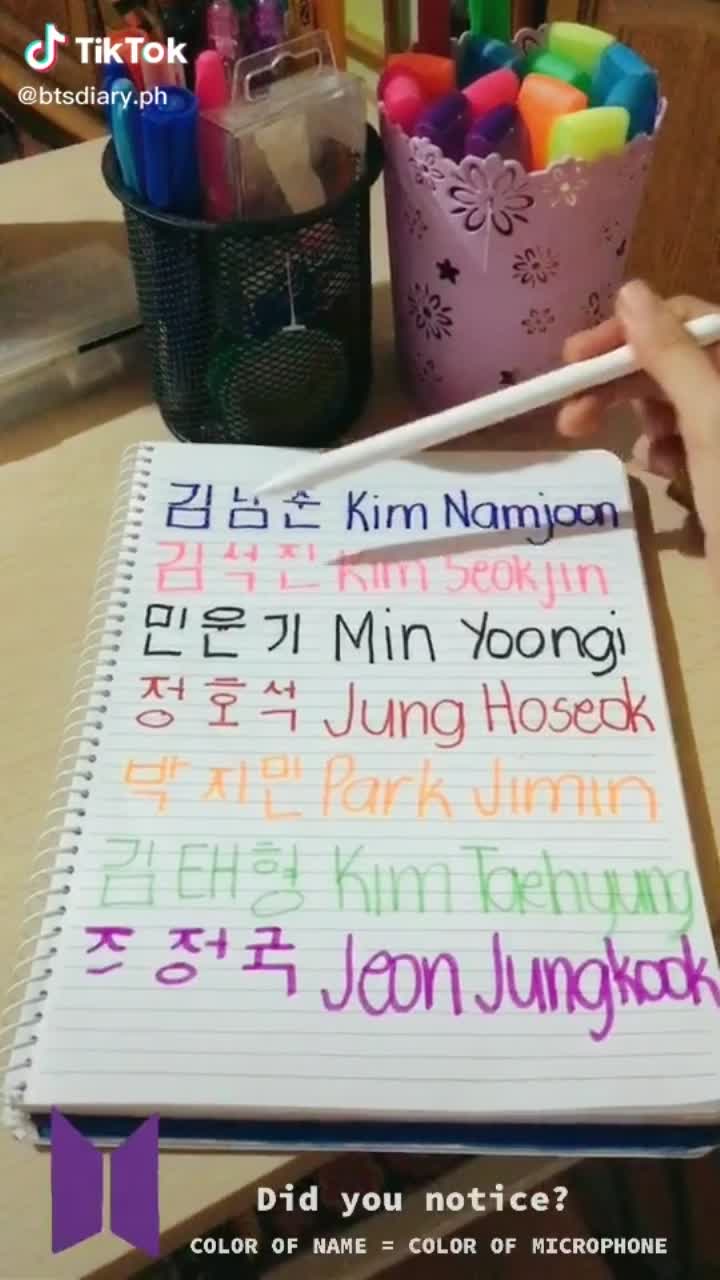 TikTok
@btsdiary.ph
김남준 Kim Namjoon
김석진 Kim Seokjin
민윤기 Min Yoongi
정호석 Jung Hoseok
박지민 Park Jimin
김태형 Kim Taehyung
즈정국 Jeon Jungkook
Did you notice?
COLOR OF NAME = COLOR OF MICROPHONE